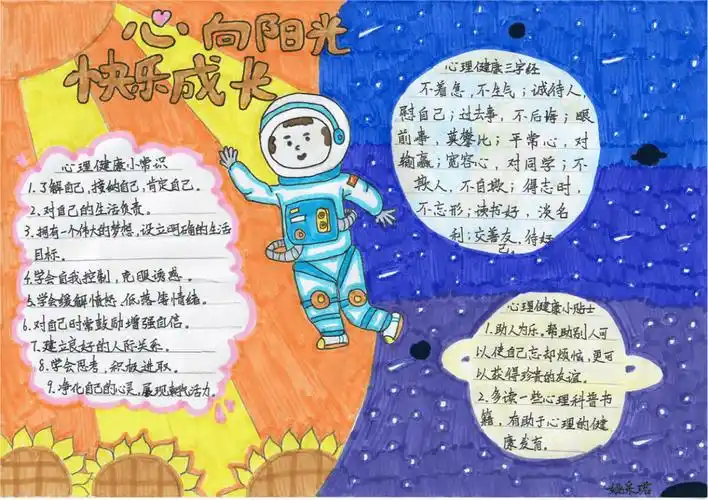 心向阳光
快乐成长
心理健康小常识
1.了解自己,接纳自己,肯定自己。
2.对自己的生活负责。
3.拥有一个伟大的梦想,设立明确的生活
目标。
4.学会自我控制,克服诱惑。
5.学会缓解愤怒、低落等情绪。
6.对自己时常鼓励增强自信。
7.建立良好的人际关系。
8.学会思考,积极进取。
9.净化自己的心灵,展现朝气活力。
心理健康三字经
不着急,不生气;诚待人,
慰自己;过去事,不后悔;眼
前事,莫攀比;平常心,对
输赢;宽容心,对同学;不
欺人,不自欺;得志时,
不忘形;读书好,淡名
利;交善友,待好
己。
心理健康小贴士
1.助人为乐,帮助别人可
以使自己忘却烦恼,更可
以获得珍贵的友谊。
2.多读一些心理科普书
籍,有助于心理的健
康发育。